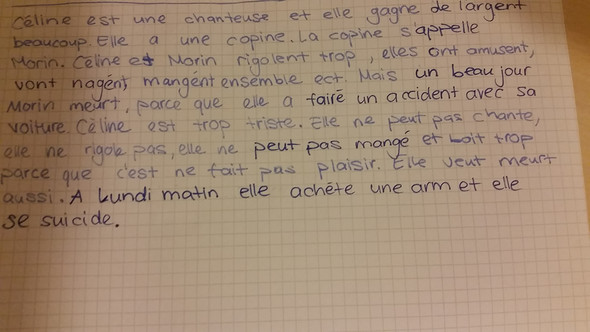 Céline est une chanteuse et elle gagne de largent
beaucoup. Elle a une copine. La copine s'appelle
Morin. Céline et Morin rigolent trop, elles ont amusent,
vont nagént, mangént ensemble ect. Mais un beau jour
Morin meurt, parce que elle a fairé un accident avec sa
voiture. Céline est trop triste. Elle ne peut pas chante,
elle ne rigole pas, elle ne peut pas mangé et boit trop
parce que c'est ne fait pas plaisir. Elle veut meurt
aussi. A Lundi matin elle achéte une arm et elle
se suicide.